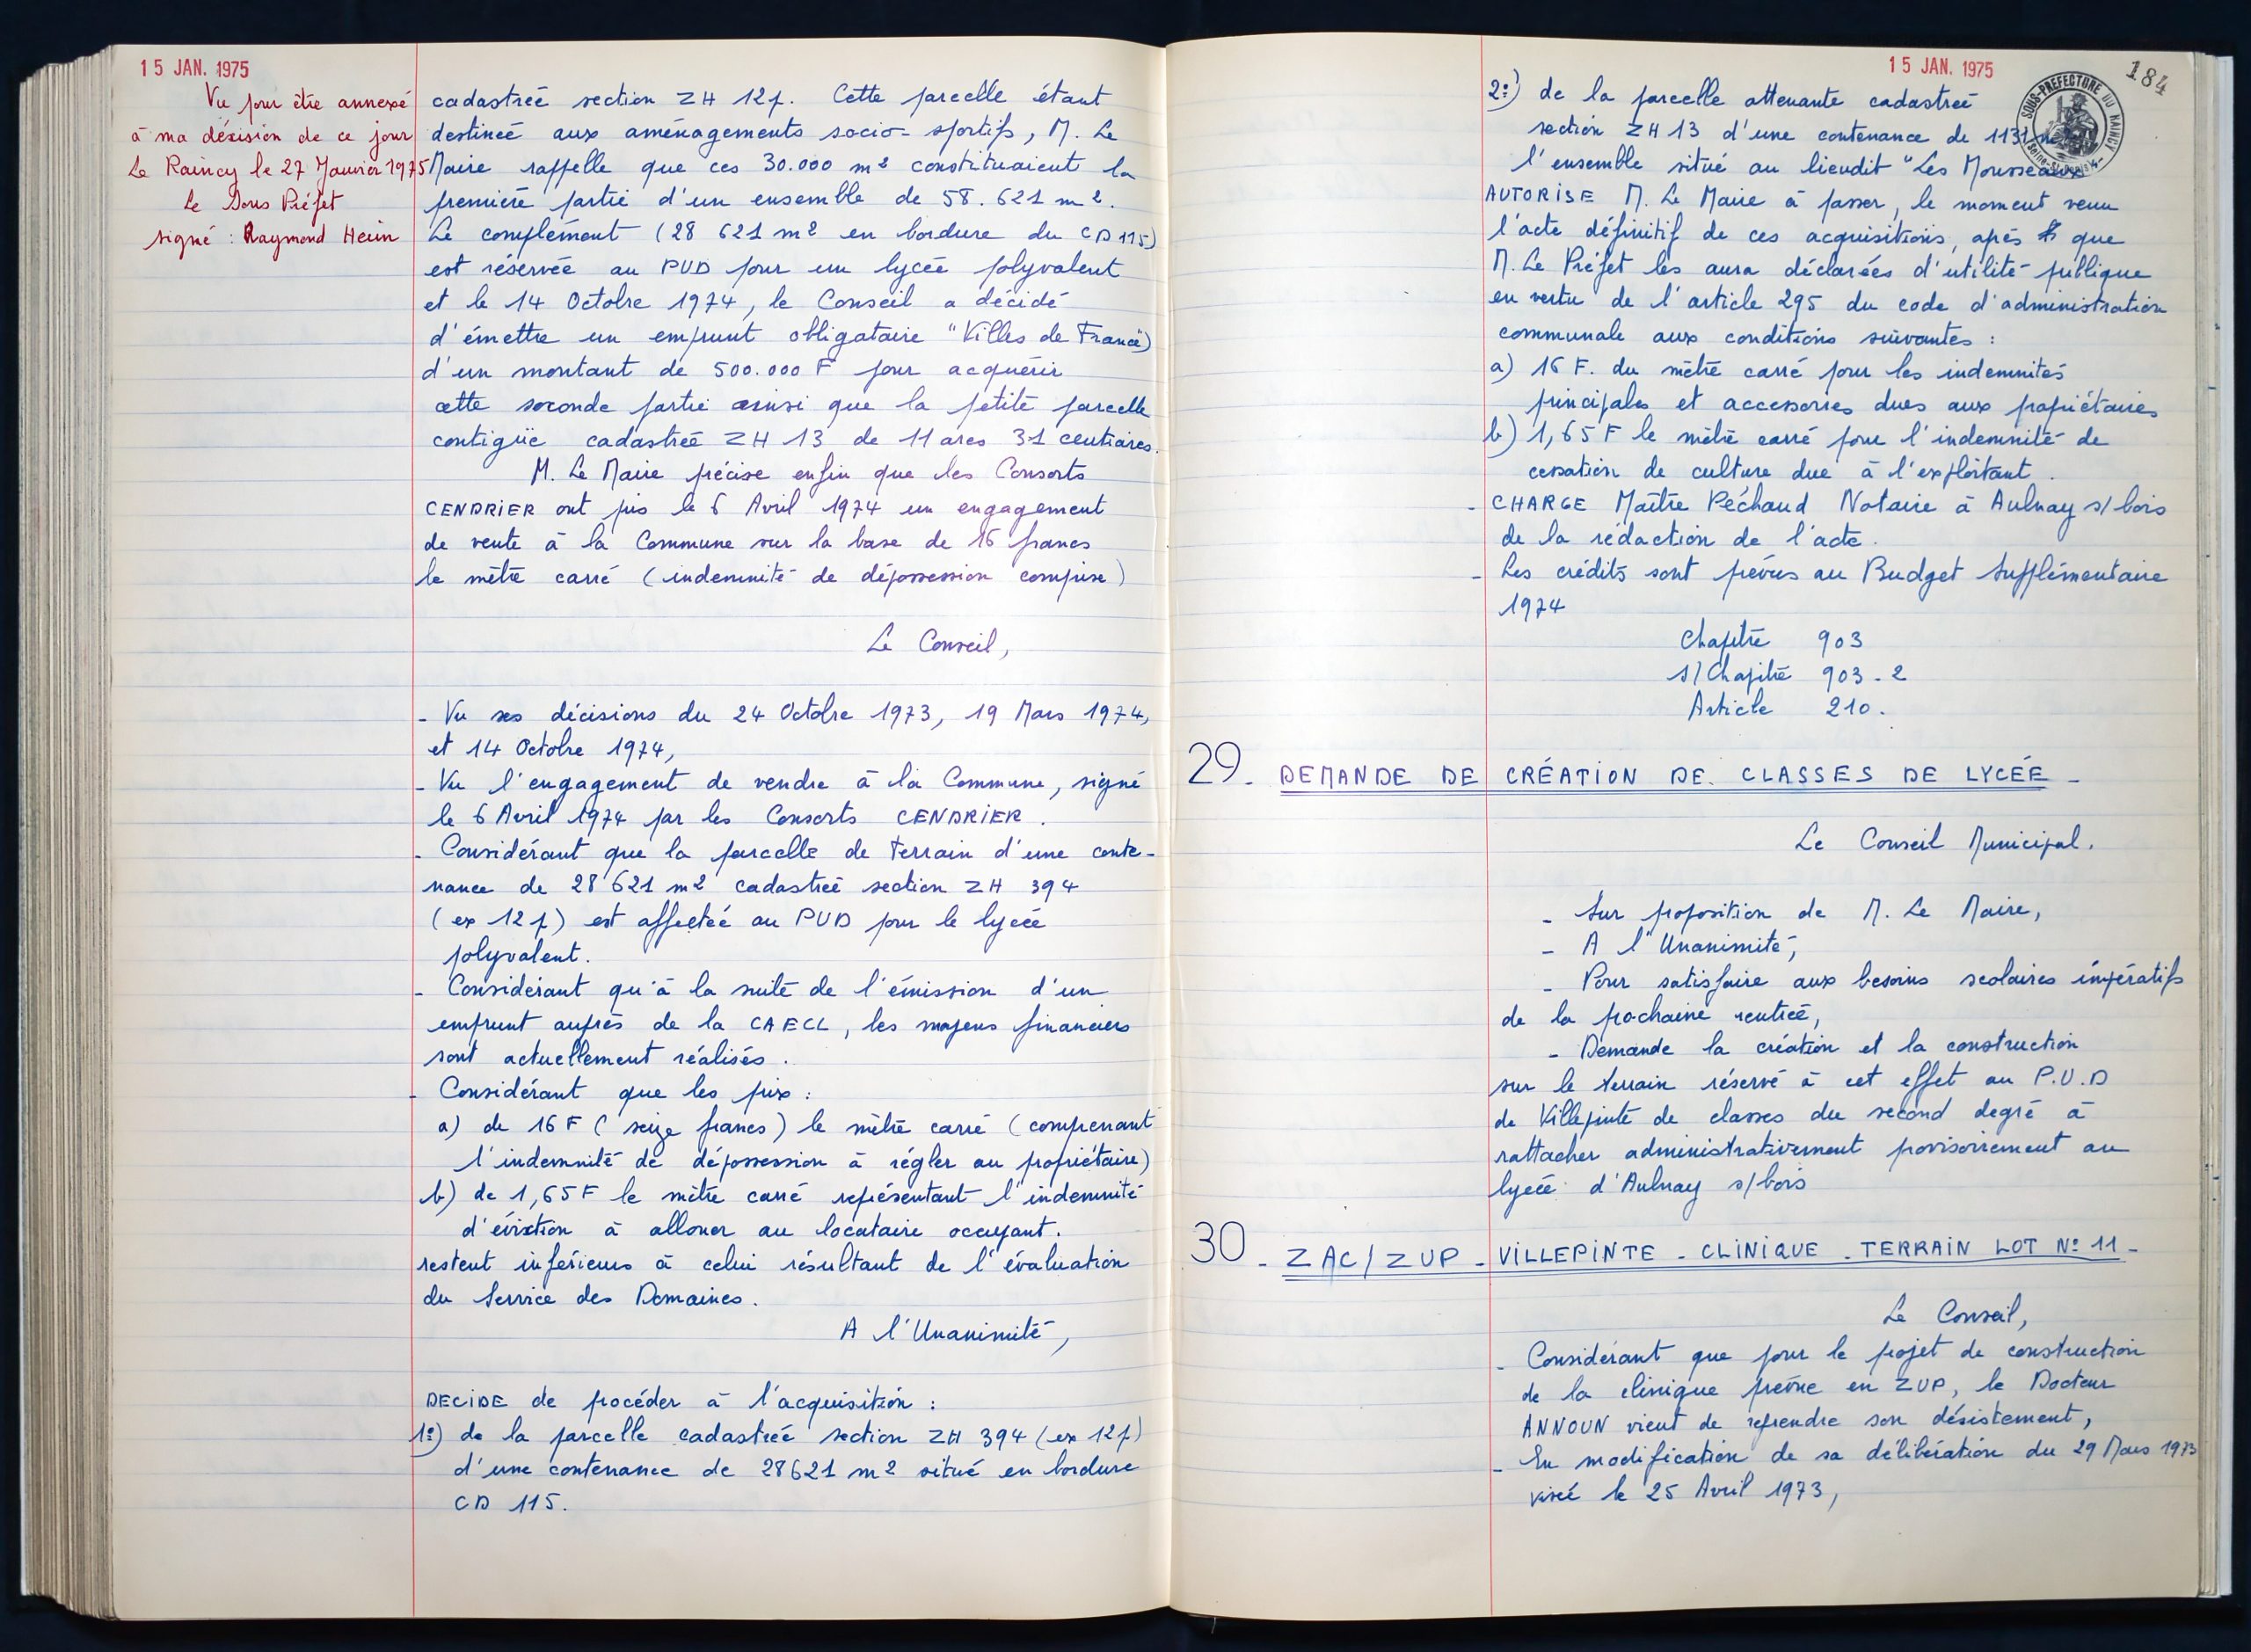 15 JAN. 1975
Vu pour être annexé
à ma décision de ce jour
Le Raincy le 27 Janvier 1975
Le Sous Préfet
signé : Raymond
cadastrée section ZH 12p. Cette parcelle étant
destinée aux aménagements socio-sportifs, M. Le
Maire rappelle que ces 30.000 m2 constituaient la
première partie d'un ensemble de 58.621 m2.
Le complément (28 621 m2 en bordure du CD 115)
est réservée au PUD pour un lycée polyvalent
et le 14 Octobre 1974, le Conseil a décidé
d'émettre un emprunt obligataire "Villes de France")
d'un montant de 500.000 F pour acquérir
cette seconde partie ainsi que la petite parcelle
contigüe cadastrée ZH 13 de 11 ares 31 centiares.
M. Le Maire précise enfin que les Consorts
CENDRIER ont pris le 6 Avril 1974 un engagement
de vente à la Commune sur la base de 16 francs
le mètre carré (indemnité de dépossession comprise)
Le Conseil,
- Vu ses décisions du 24 Octobre 1973, 19 Mars 1974,
et 14 Octobre 1974,
- Vu l'engagement de vendre à la Commune, signé
le 6 Avril 1974 par les Consorts CENDRIER.
- Considérant que la parcelle de terrain d'une conte-
nance de 28 621 m2 cadastrée section ZH 394
(ex 12p) est affectée au PUD pour le lycée
polyvalent.
- Considérant qu'à la suite de l'émission d'un
emprunt auprès de la CAECL, les moyens financiers
sont actuellement réalisés.
- Considérant que les prix :
a) de 16 F (seize francs) le mètre carré (comprenant
l'indemnité de dépossession à régler au propriétaire)
b) de 1,65 F le mètre carré représentant l'indemnité
d'éviction à allouer au locataire occupant.
restent inférieurs à celui résultant de l'évaluation
du Service des Domaines.
A l'Unanimité,
DECIDE de procéder à l'acquisition :
1º) de la parcelle cadastrée section ZH 394 (ex 12p)
d'une contenance de 28621 m2 situé en bordure
CD 115.
15 JAN. 1975
184
SOUS-PREFECTURE DU RAINCY
Seine-St-Denis
2º) de la parcelle attenante cadastrée
section ZH 13 d'une contenance de 1131 m2
l'ensemble situé au lieudit "Les Mousseaux"
AUTORISE M. Le Maire à passer, le moment venu
l'acte définitif de ces acquisitions, après que
M. Le Préfet les aura déclarées d'utilité publique
en vertu de l'article 295 du code d'administration
communale aux conditions suivantes :
a) 16 F. du mètre carré pour les indemnités
principales et accessoires dues aux propriétaires
b) 1,65 F le mètre carré pour l'indemnité de
cessation de culture due à l'exploitant.
- CHARGE Maître Péchaud Notaire à Aulnay s/bois
de la rédaction de l'acte.
- Les crédits sont prévus au Budget Supplémentaire
1974
Chapitre 903
s/Chapitre 903-2
Article 210.
29- DEMANDE DE CRÉATION DE CLASSES DE LYCÉE -
Le Conseil Municipal.
- Sur proposition de M. Le Maire,
- A l'Unanimité,
- Pour satisfaire aux besoins scolaires impératifs
de la prochaine rentrée,
- Demande la création et la construction
sur le terrain réservé à cet effet au P.U.D
de Villepinte de classes du second degré à
rattacher administrativement provisoirement au
lycée d'Aulnay s/bois
30 - ZAC/ZUP - VILLEPINTE - CLINIQUE - TERRAIN LOT Nº 11 -
Le Conseil,
- Considérant que pour le projet de construction
de la clinique prévue en ZUP, le Docteur
ANNOUN vient de reprendre son désistement,
- En modification de sa délibération du 29 Mars 1973
visée le 25 Avril 1973,